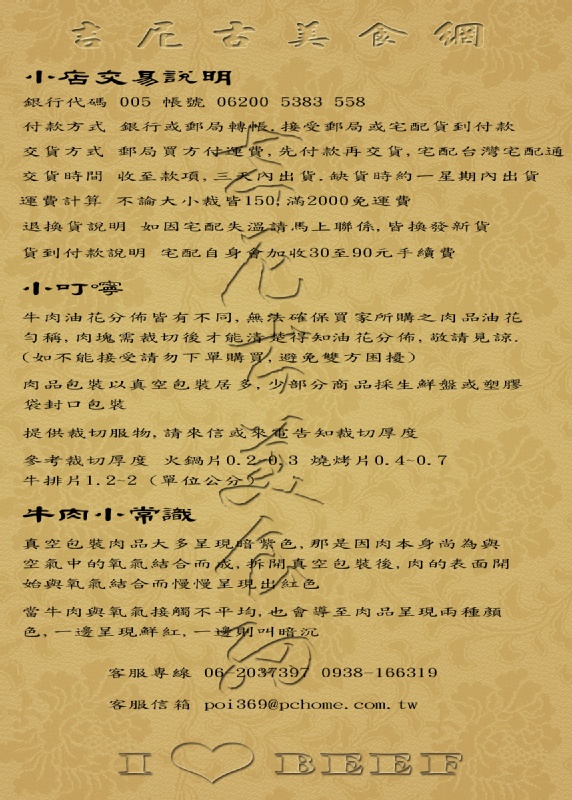 吉尼古美食網
小店交易說明
銀行代碼 005 帳號 06200 5383 558
付款方式 銀行或郵局轉帳.接受郵局或宅配貨到付款
交貨方式 郵局買方付運費,先付款再交貨,宅配台灣宅配通
交貨時間 收至款項,三天內出貨.缺貨時約一星期內出貨
運費計算 不論大小裁皆150,滿2000免運費
退換貨說明 如因宅配失溫請馬上聯係,皆換發新貨
貨到付款說明 宅配自身會加收30至90元手續費
小叮嚀
牛肉油花分佈皆有不同,無法確保買家所購之肉品油花
勻稱,肉塊需裁切後才能清楚得知油花分佈,敬請見諒.
(如不能接受請勿下單購買,避免雙方困擾)
肉品包裝以真空包裝居多,少部分商品採生鮮盤或塑膠
袋封口包裝
提供裁切服物,請來信或來電告知裁切厚度
參考裁切厚度 火鍋片0.2~0.3 燒烤片0.4~0.7
牛排片1.2~2 (單位公分)
牛肉小常識
真空包裝肉品大多呈現暗紫色,那是因肉本身尚為與
空氣中的氧氣結合而成,拆開真空包裝後,肉的表面開
始與氧氣結合而慢慢呈現出紅色
當牛肉與氧氣接觸不平均,也會導至肉品呈現兩種顏
色,一邊呈現鮮紅,一邊則叫暗沉
客服專線 06-2037397 0938-166319
客服信箱 poi369@pchome.com.tw
I BEEF
吉尼古美食網